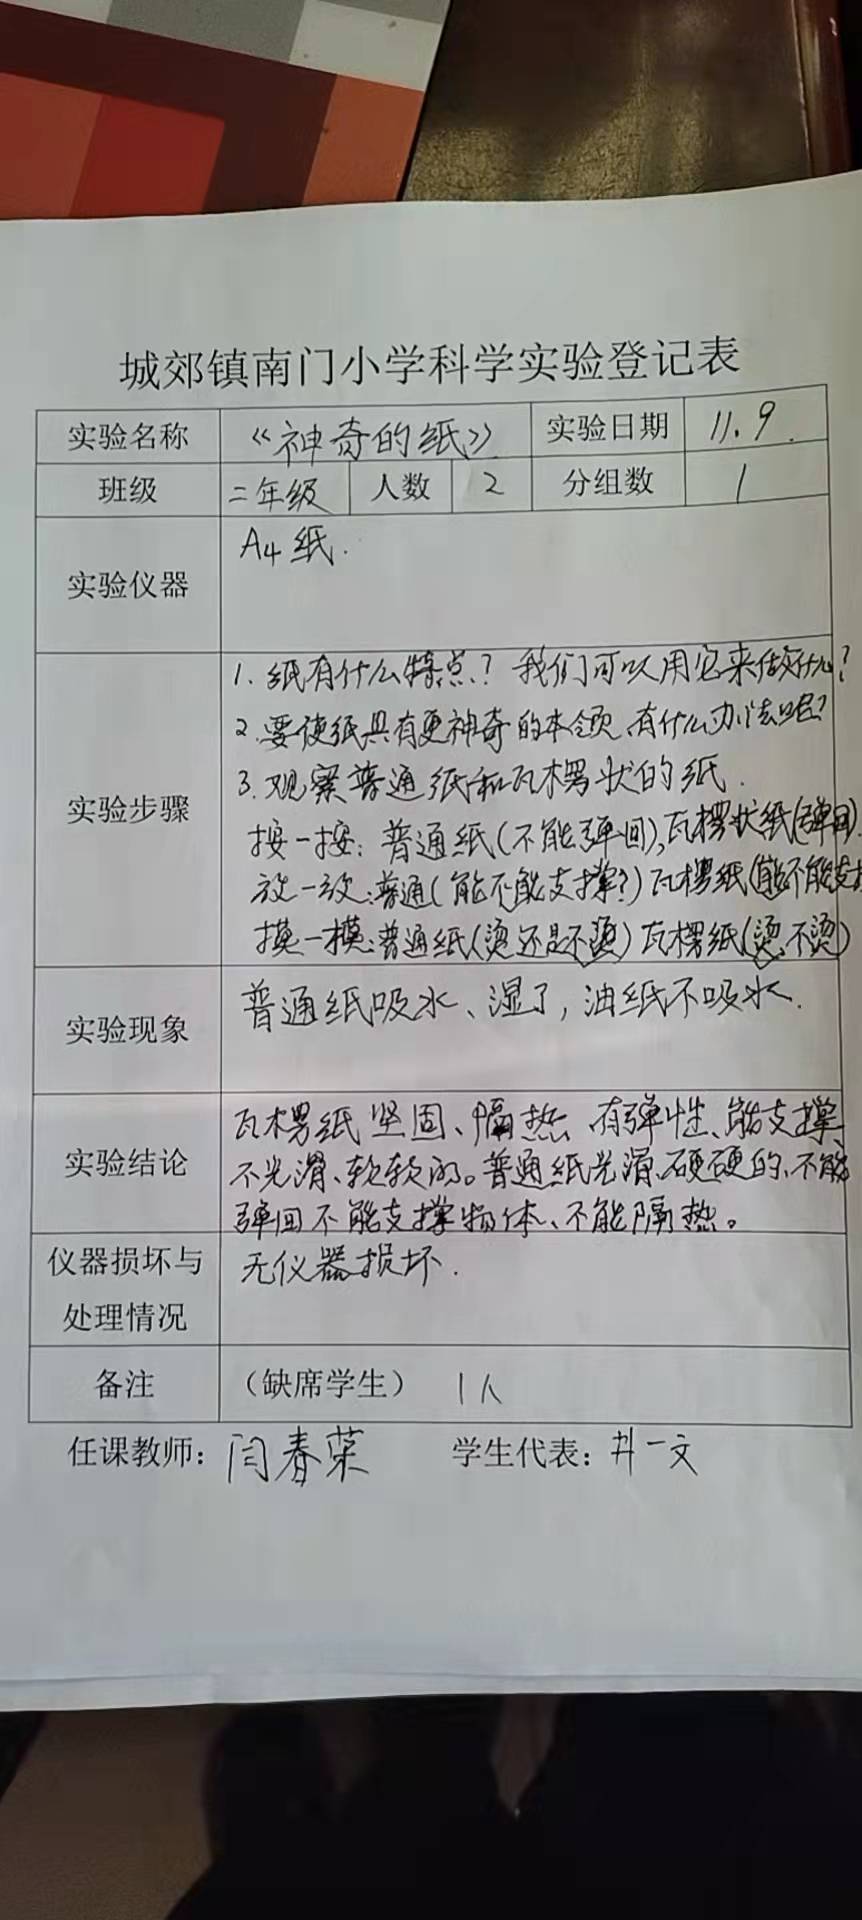 城郊镇南门小学科学实验登记表
实验名称 《神奇的纸》 实验日期 11.9.
班级 二年级 人数 2 分组数 1
实验仪器 A4纸.
实验步骤
1.纸有什么特点？我们可以用它来做什么？
2.要使纸具有更神奇的本领,有什么办法呢？
3.观察普通纸和瓦楞状的纸.
按一按：普通纸(不能弹回),瓦楞状纸(弹回).
放一放:普通(能不能支撑？)瓦楞纸(能不能支撑
摸一模:普通纸(烫还是不烫)瓦楞纸(烫,不烫)
实验现象 普通纸吸水、湿了,油纸不吸水.
实验结论
瓦楞纸坚固、隔热、有弹性、能支撑、
不光滑、软软的。普通纸光滑、硬硬的、不能
弹回不能支撑物体、不能隔热。
仪器损坏与
处理情况
无仪器损坏.
备注 （缺席学生） 1人
任课教师：闫春荣 学生代表：井一文